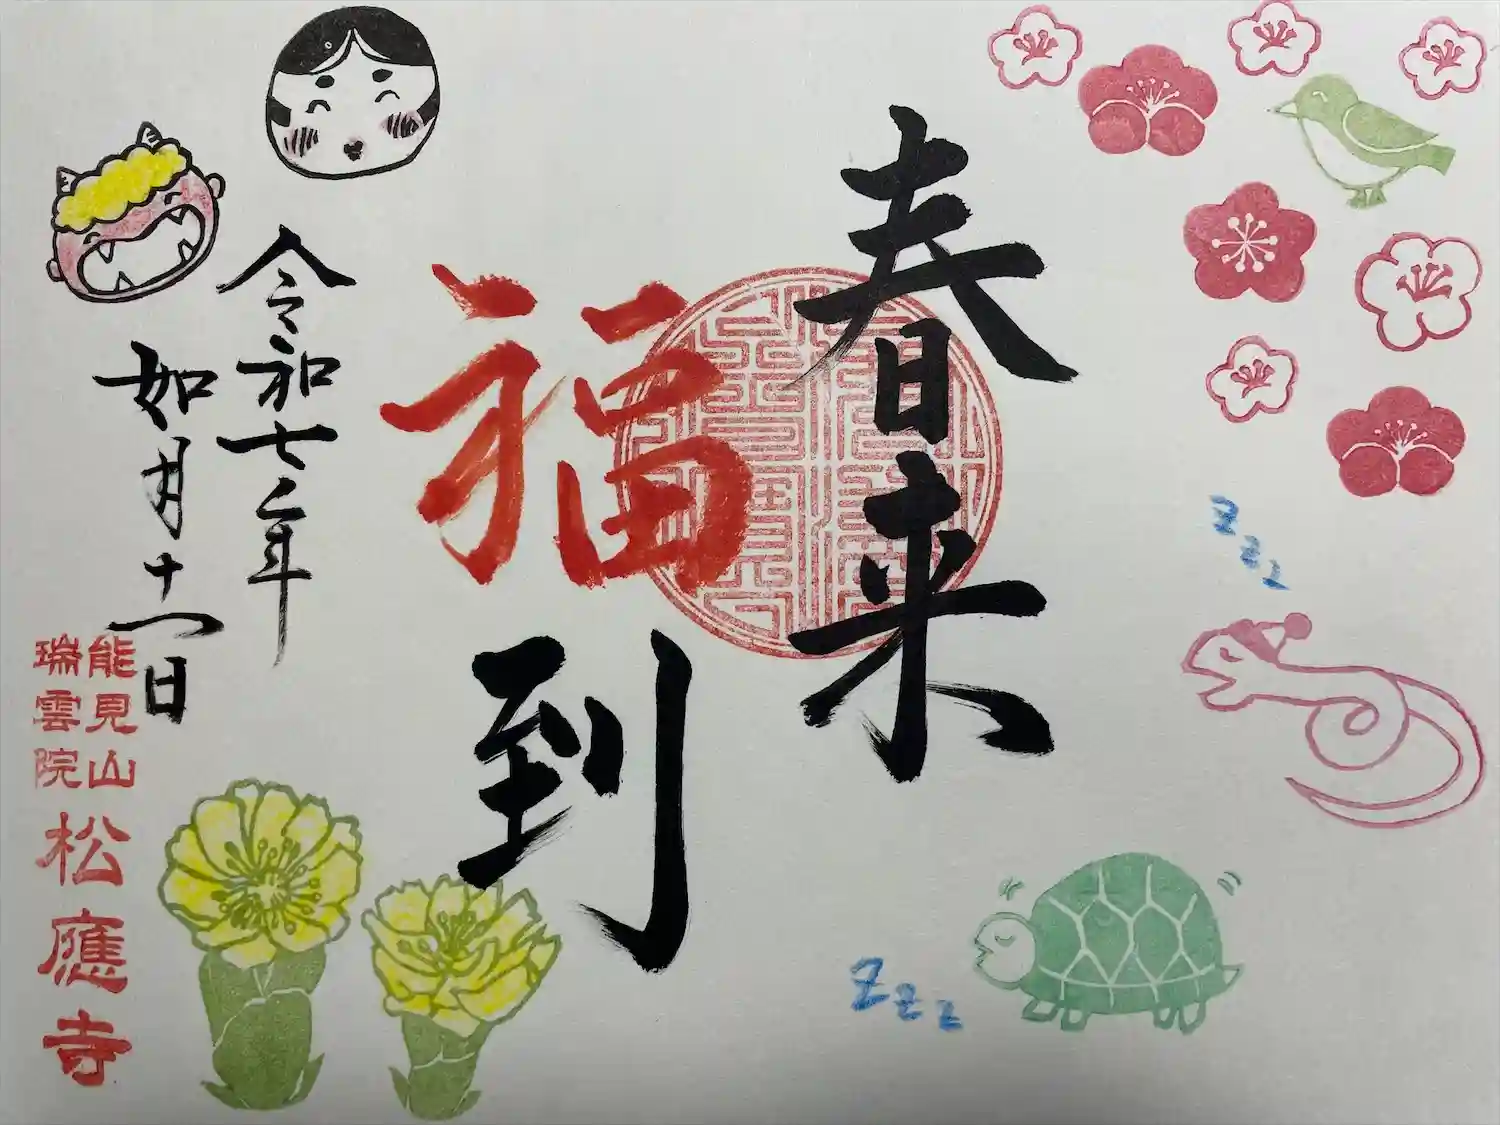 春来
福到
令和七年
如月十一日
能見山
瑞雲院
松應寺
zzz
zzz